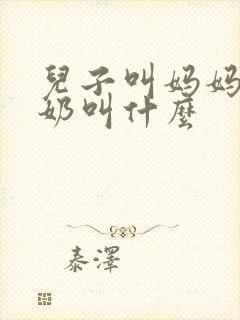 兒子叫妈妈
奶叫什麼
泰澤